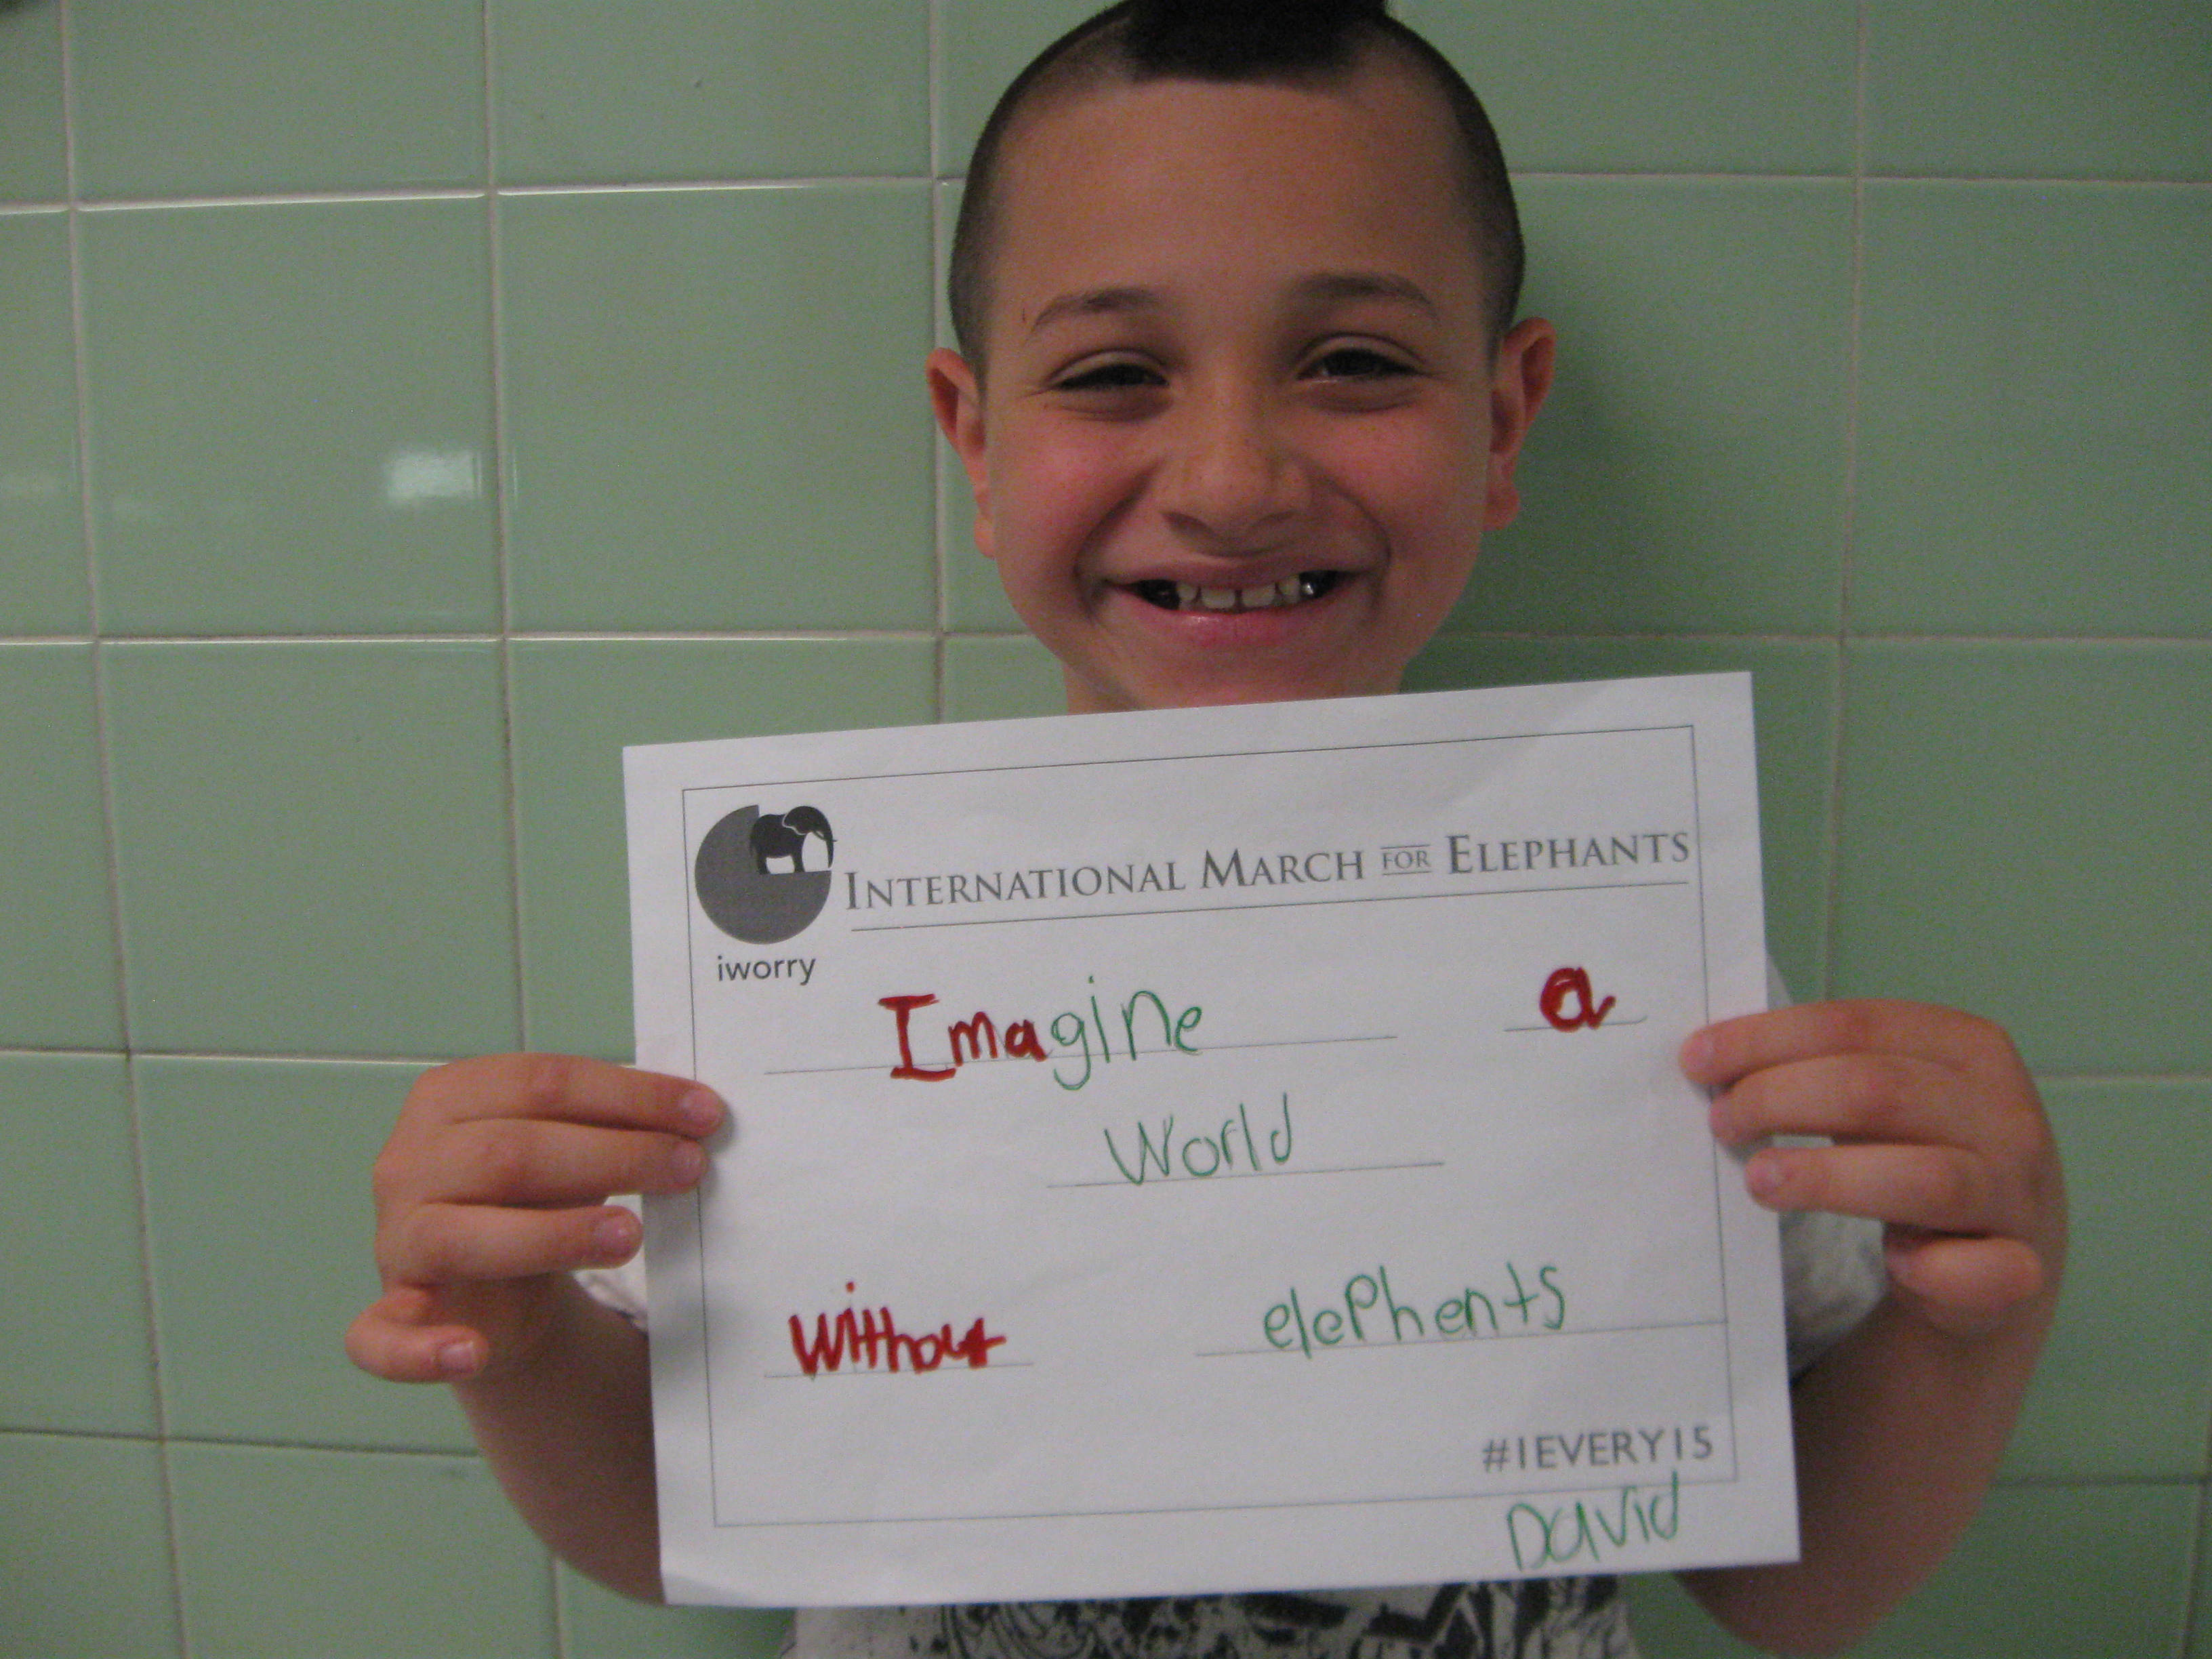 INTERNATIONAL MARCH FOR ELEPHANTS
iworry
Imagine a
World
Without elephents
#1EVERY15
David